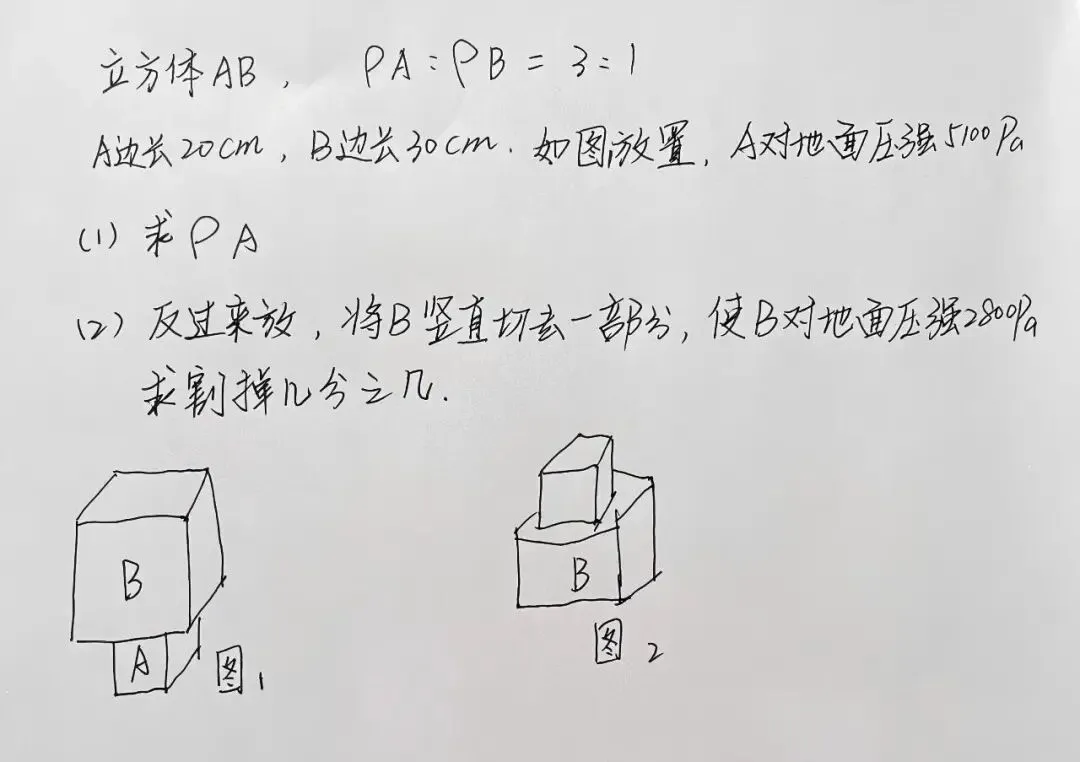 立方体AB, ρA:ρB=3:1
A边长20cm,B边长30cm.如图放置,A对地面压强5100Pa
(1)求ρA
(2)反过来放,将B竖直切去一部分,使B对地面压强2800Pa
求割掉几分之几.
B
A
图1
B
图2